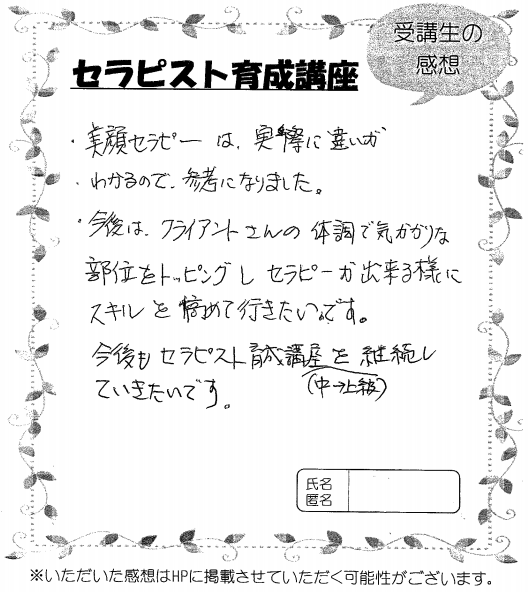 受講生の
感想
セラピスト育成講座
・美顔セラピーは、実際に違いが
・わかるので、参考になりました。
・今後は、クライアントさんの体調で気がかりな
部位をトッピングしセラピーが出来る様に
スキルを めて行きたいです。
今後もセラピスト育成講座を継続し
(中→上級)
ていきたいです。
氏名
匿名
※いただいた感想はHPに掲載させていただく可能性がございます。